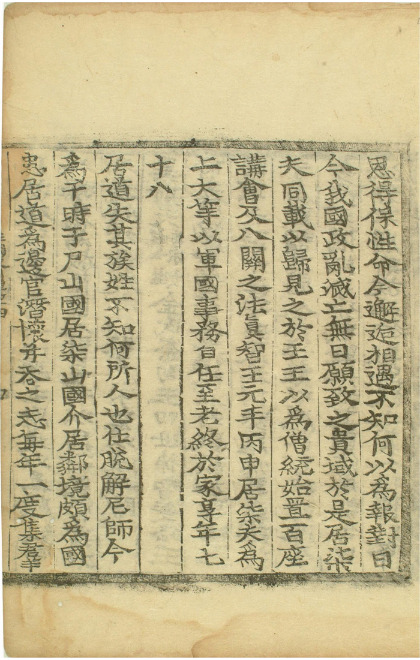 恩得保性命今邂逅相遇不知何以為報對曰
今我國政亂滅亡無日願致之貴域於是居柒
夫同載以歸見之於王王以為僧統始置百座
講會及八關之法眞智王元年丙申居柒夫為
上大等以軍國事務自任至老終於家享年七
十八
居道失其族姓不知何所人也仕脫解尼師今
為干時于尸山國居柒山國介居鄰境頗為國
患居道為邊官潛懷并吞之志每年一度集羣